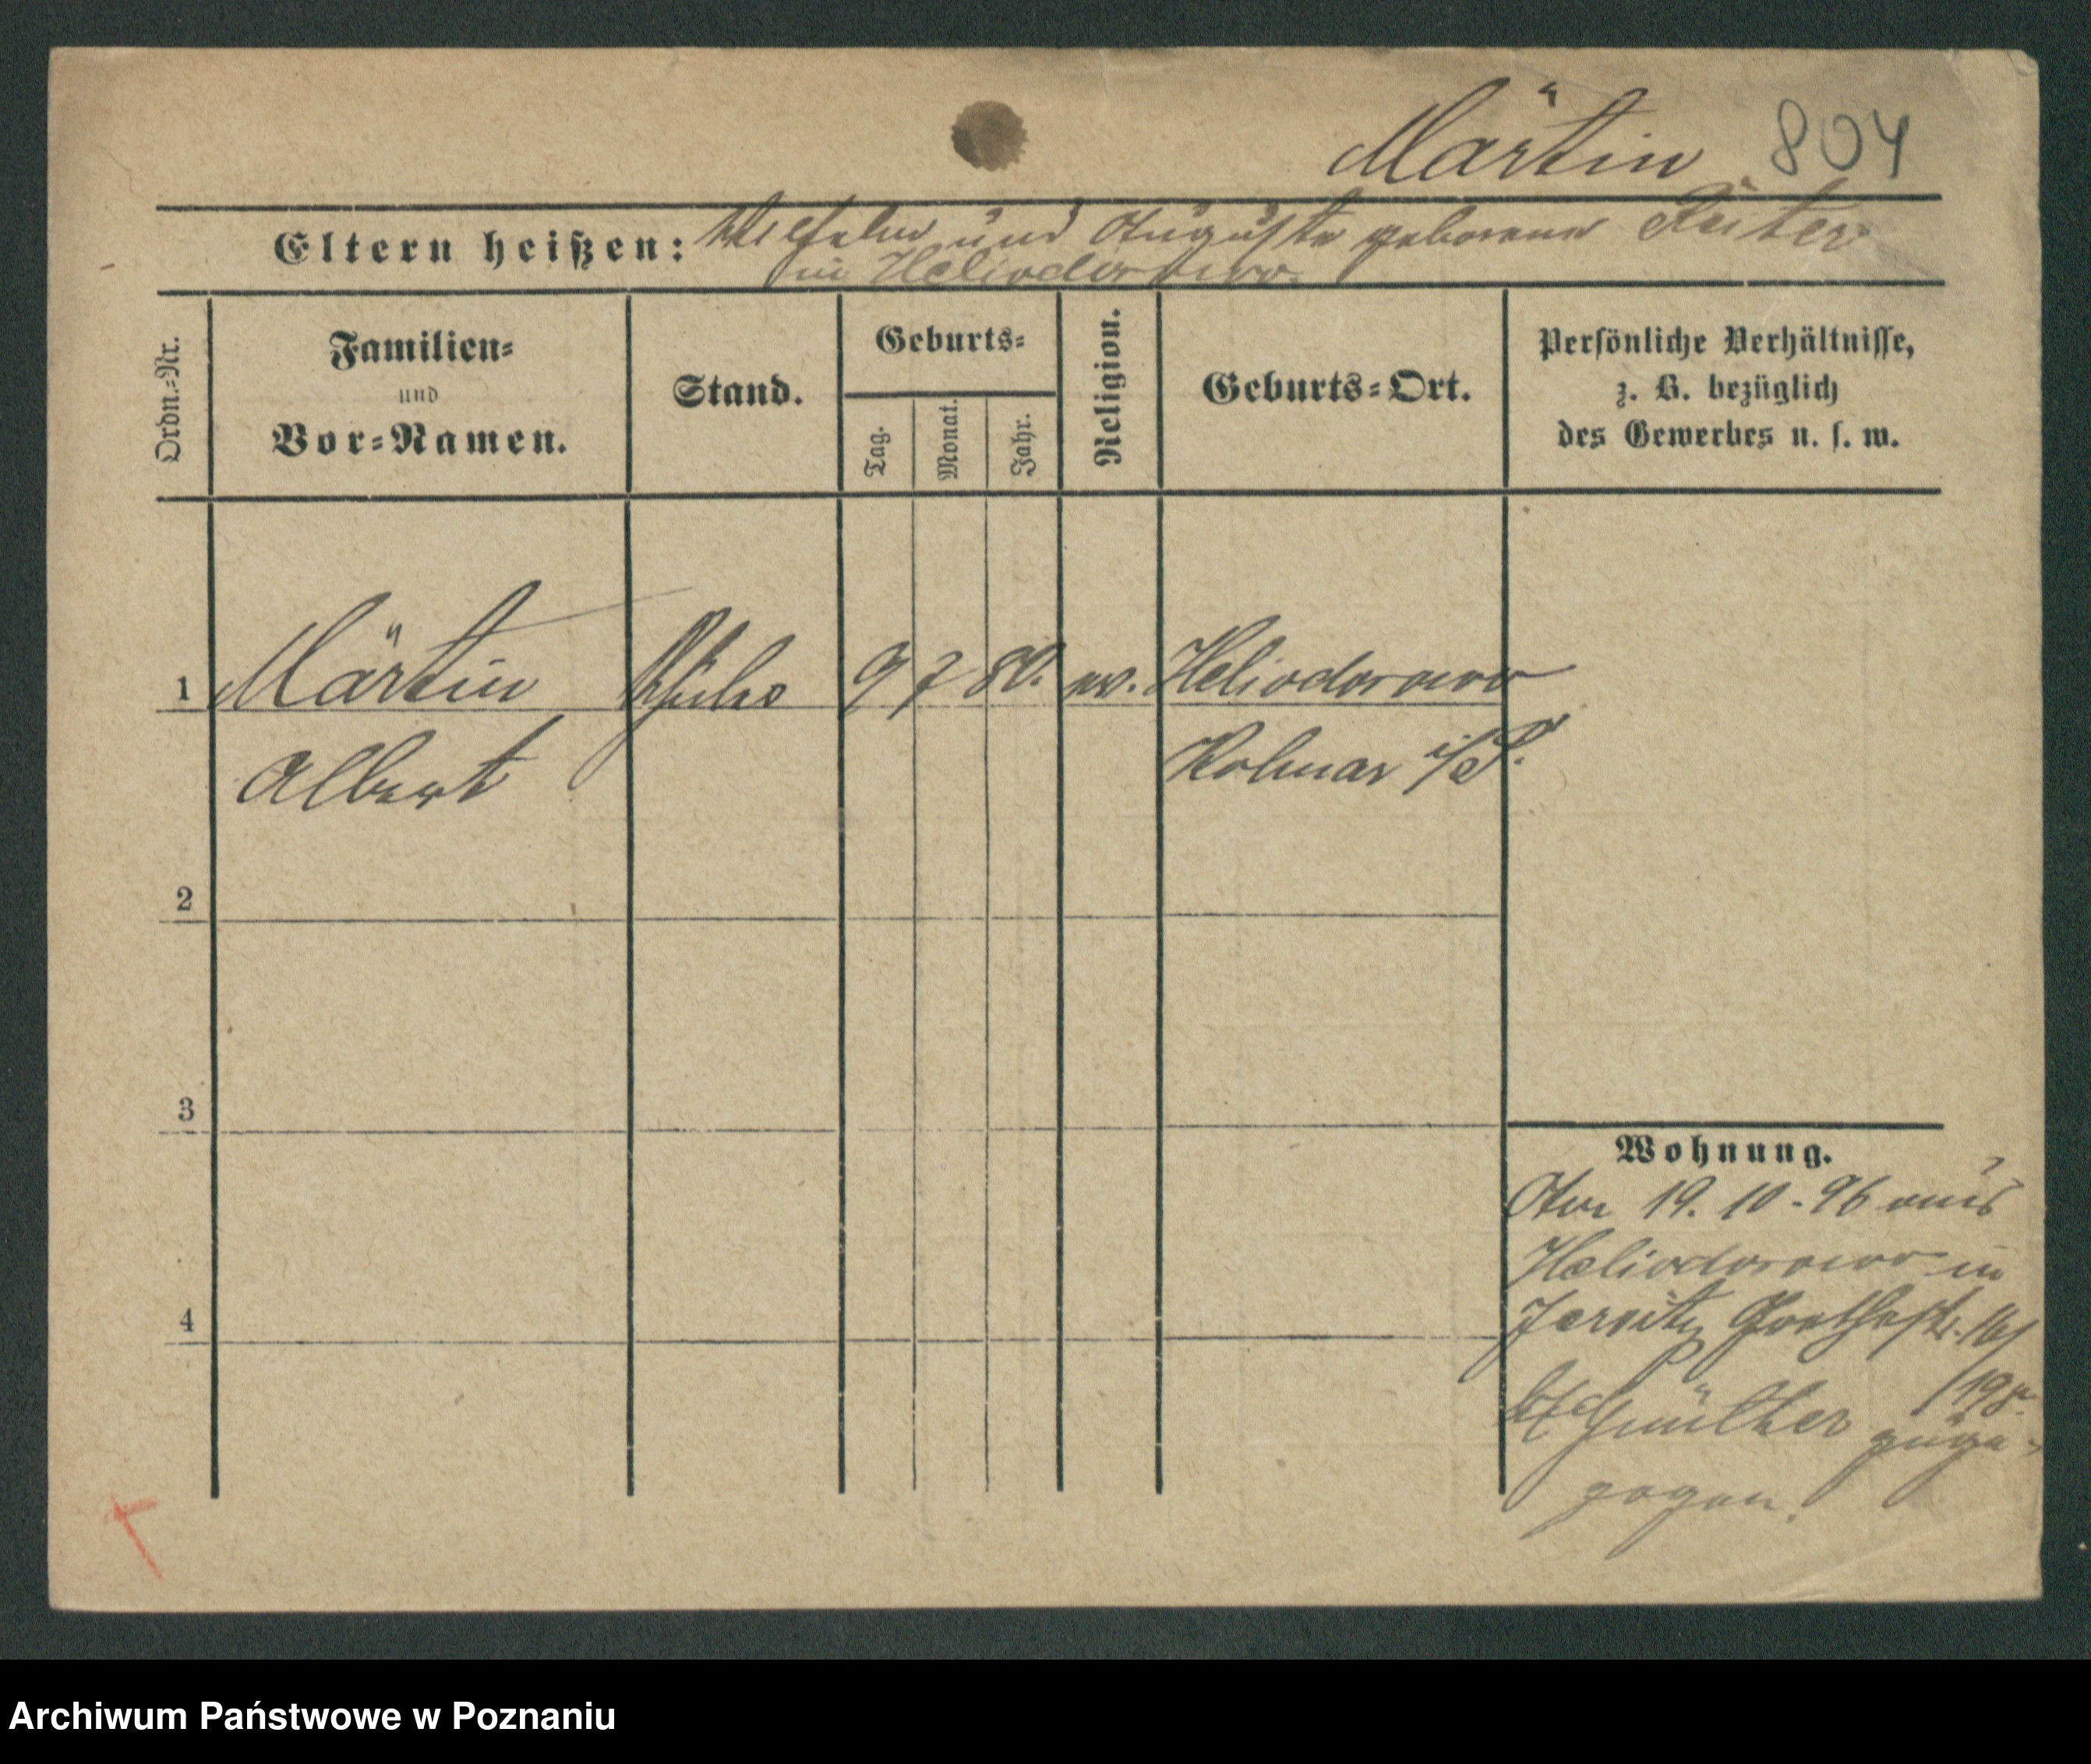 Märtin 804
Eltern heißen: Wilhelm und Auguste geborene Reiter
in Heliodorowo.
Ordn.-Nr.
Familien-
und
Vor-Namen.
Stand.
Geburts-
Tag.
Monat.
Jahr.
Religion.
Geburts-Ort.
Persönliche Verhältnisse,
z. B. bezüglich
des Gewerbes u. s. w.
1 Märtin 9 7 80. ev. Heliodorowo
Albert Kolmar i/P.
2
3
4
Wohnung.
Am 19. 10. 96 aus
Heliodorowo in
Jersitz Goethestr. 16/
b/ Günther zuge-
zogen.
Archiwum Państwowe w Poznaniu